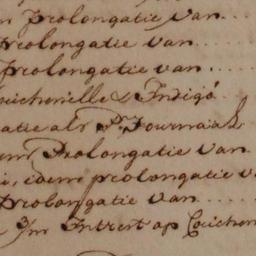 prolongatie van....
prolongatie van....
prolongatie van....
Couchenille & Indigo
atie als Pr. Journaal
Prolongatie van
idem prolongatie v
prolongatie van.....
3/m Intrest op Couchen